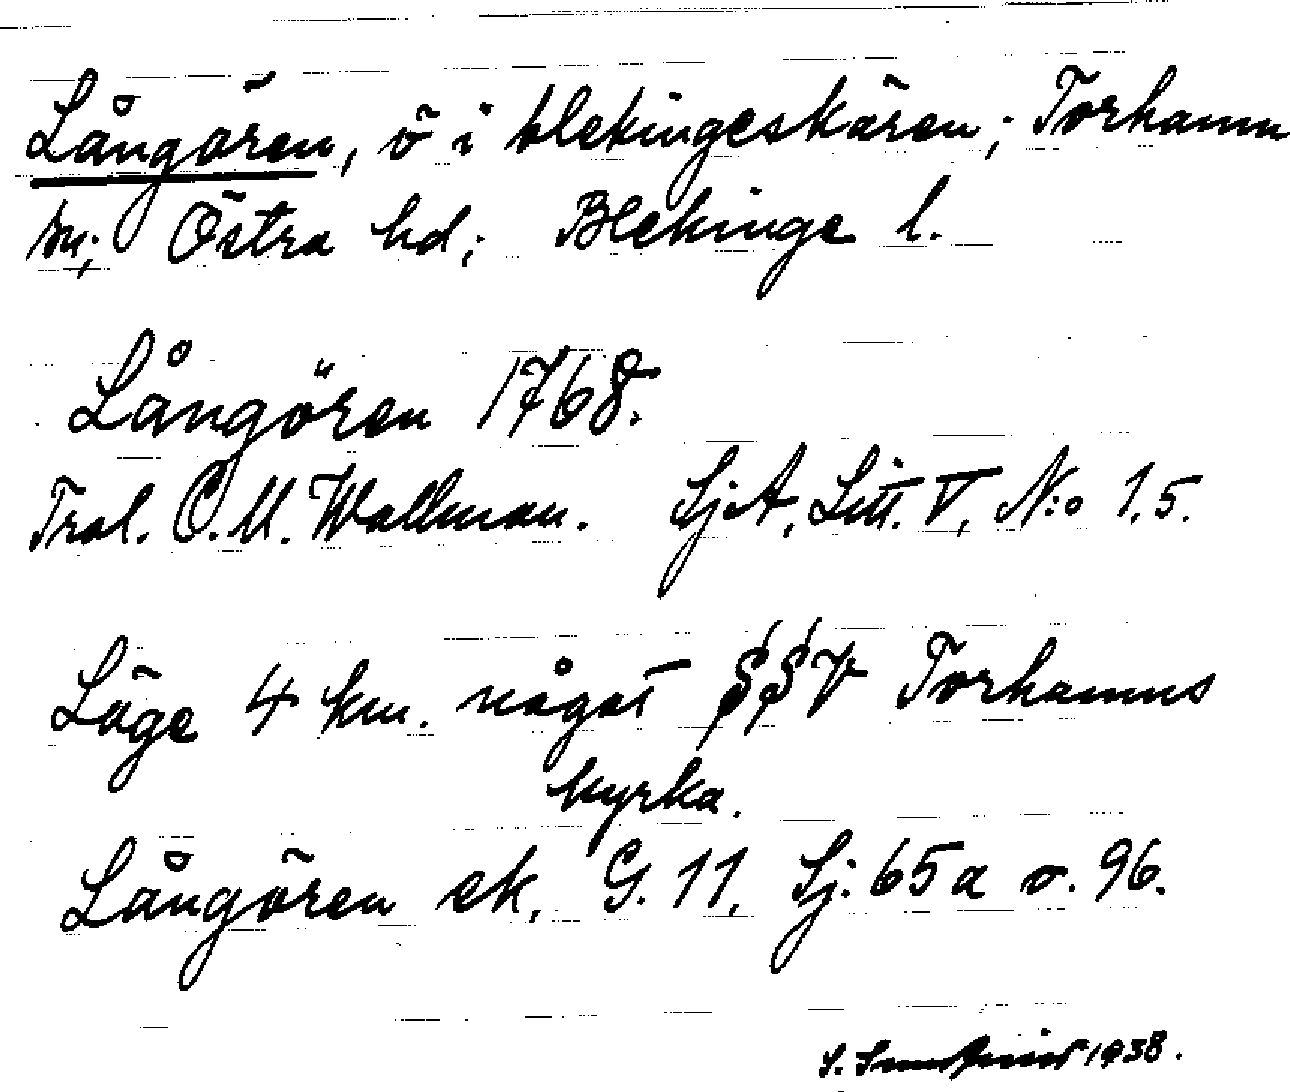 Långören, ö i blekingeskären; Torhamn
sn; Östra hd; Blekinge l.
Långören 1768.
Trol. C.M. Wallman. SjA, Litt. V, N:o 1,5.
Läge 4 km. något SSV Torhamns
kyrka.
Långören ek. G. 11, Sj: 65a o. 96.
S. 1938.